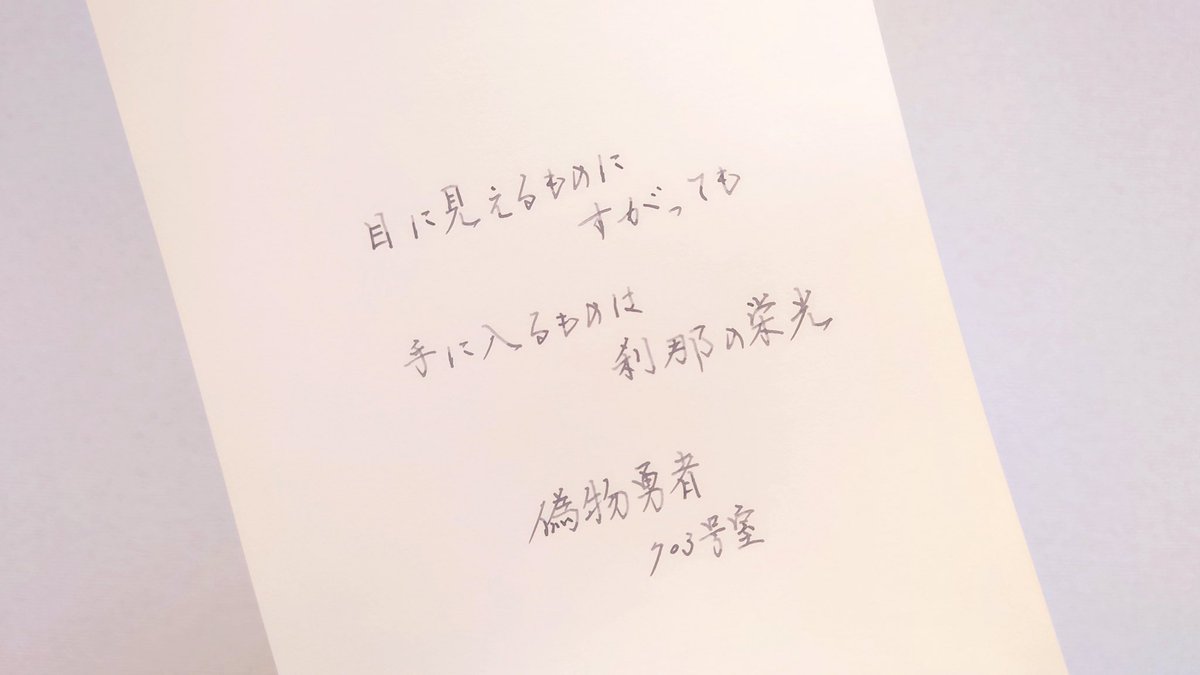 目に見えるものに
すがっても
手に入るものは
刹那の栄光
偽物勇者
703号室